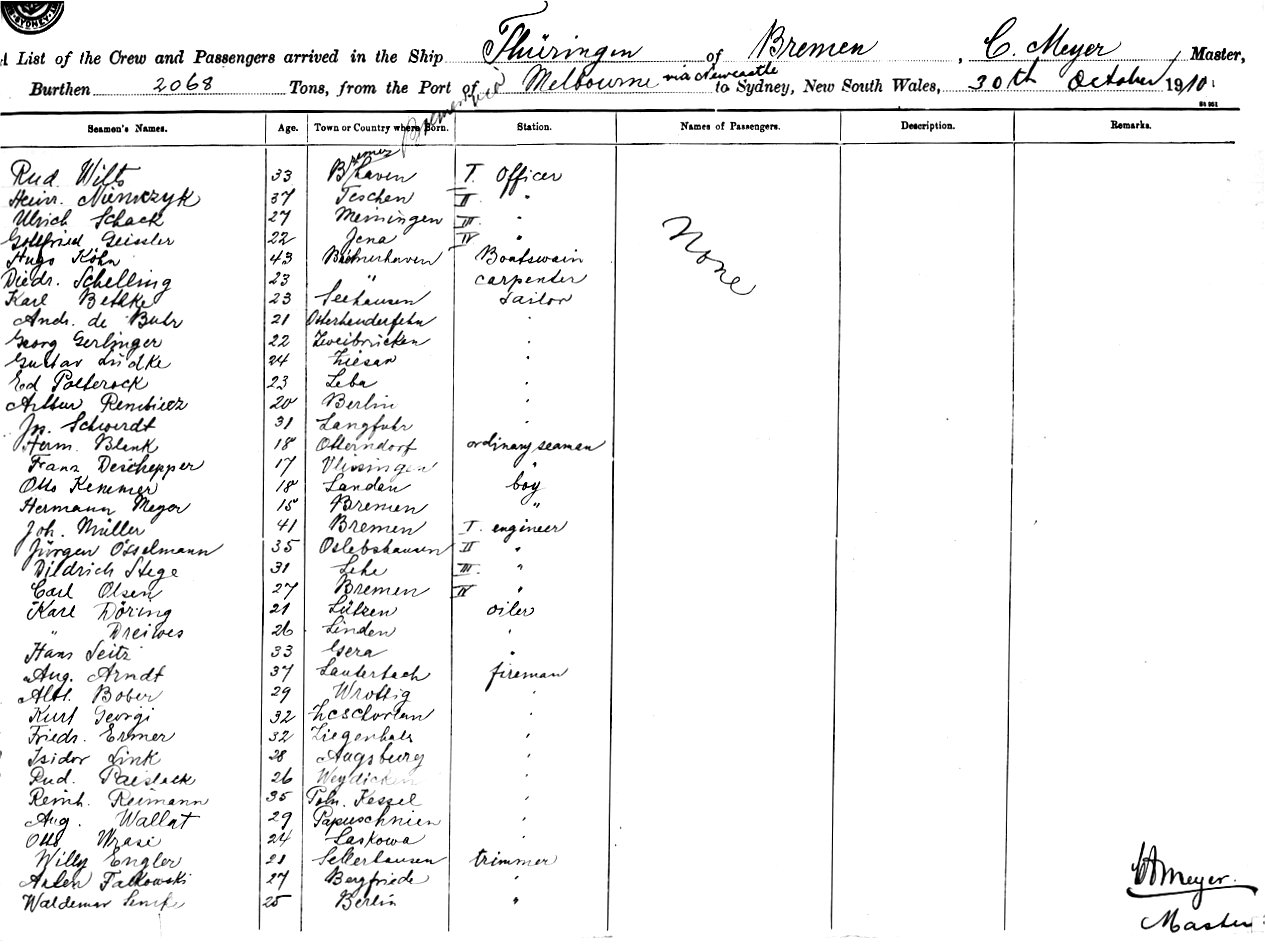 SYDNEY
A List of the Crew and Passengers arrived in the Ship Thüringen of Bremen, C. Meyer, Master,
Burthen 2068 Tons, from the Port of Melbourne via Newcastle to Sydney, New South Wales, 30th October 1910.
Seamen's Names. Age. Town or Country where Born. Station. Names of Passengers. Description. Remarks.
Rud. Wilts 33 Bremerhaven I. Officer
Heinr. Niemczyk 37 Teschen II. "
Ulrich Schack 27 Meiningen III. "
Gottfried Geissler 22 Jena IV "
None
Hugo Köhn 43 Bremerhaven Boatswain
Diedr. Schelling 23 " carpenter
Karl Bethke 23 Seehausen Sailor
Andr. de Buhr 21 Osterhauderfehn "
Georg Gerlinger 22 Zweibrücken "
Gustav Lüdke 24 "
Ed 23 Leba "
Arthur 20 Berlin "
Schwerdt 31 Langfuhr "
Herm. Blank 18 Otterndorf ordinary seaman
Franz Deschepper 17 Vlissingen "
Otto Kemmer 18 Landau boy
Hermann Meyer 15 Bremen "
Joh. Müller 41 Bremen I. engineer
Jürgen Osselmann 35 Oslebshausen II "
Diedrich Stege 31 Lehe III. "
Carl Olsen 27 Bremen IV "
Karl Döring 21 Lützen oiler
" Dreiwes 26 Linden "
Hans Seitz 33 Gera "
Aug. Arndt 37 Lauterbach fireman
Alb. Bober 29 "
Kurt Georgi 32 Zschorlau "
Friedr. Ermer 32 Ziegenhals "
Isidor Link 28 Augsburg "
Rud. 26 Weydicken "
Reinh. Reimann 35 Poln. Kessel "
Aug. Wallat 29 Papuschnien "
Otto Wrase 24 Laskowa "
Willy Engler 21 Sellerhausen trimmer
Falkowski 27 Bergfriede "
Waldemar 25 Berlin "
Meyer.
Master